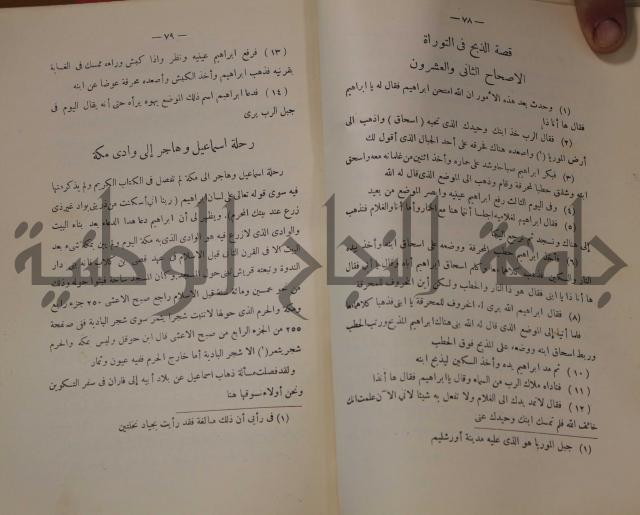 — ٧٨ —
قصة الذبح فى التوراة
الاصحاح الثانى والعشرون
(١) وحدث بعد هذه الأمور ان الله امتحن ابراهيم فقال له يا ابراهيم
فقال ها أنا ذا
(٢) فقال الرب خذ ابنك وحيدك الذى تحبه (اسحاق) واذهب الى
أرض الموريا (١) واصعده هناك محرقة على أحد الجبال الذى أقول لك
(٣) فبكر ابراهيم صباحا وشد على حماره وأخذ اثنين من غلمانه معه واسحق
ابنه وشقق حطبا لمحرقة وقام وذهب الى الموضع الذى قال له الله
(٤) وفى اليوم الثالث رفع ابراهيم عينيه وابصر الموضع من بعيد
(٥) فقال ابراهيم لغلاميه اجلسا أنتما هنا مع الحمار وأما أنا والغلام فنذهب
إلى هناك ونسجد ثم نرجع اليكما
(٦) فأخذ ابراهيم حطب المحرقة ووضعه على اسحاق ابنه وأخذ بيده
النار والسكين فذهبا كلاهما معا وكلم اسحاق ابراهيم أباه وقال يا أبى فقال
ها أنا ذا يا ابنى فقال هو ذا النار والحطب ولكن أين الخروف للمحرقة
(٨) فقال ابراهيم الله يرى له الخروف للمحرقة يا ابنى فذهبا كلاهما معا
فلما أتيا إلى الموضع الذى قال له الله بنى هناك ابراهيم المذبح ورتب الحطب
وربط اسحاق ابنه ووضعه على المذبح فوق الحطب
(١٠) ثم مد ابراهيم يده وأخذ السكين ليذبح ابنه
(١١) فناداه ملاك الرب من السماء وقال يا ابراهيم فقال ها أنذا
(١٢) فقال لا تمد يدك الى الغلام ولا تفعل به شيئا لانى الآن علمت انك
خائف الله فلم تمسك ابنك وحيدك عنى
(١) جبل الموريا هو الذى عليه مدينة أورشليم
— ٧٩ —
(١٣) فرفع ابراهيم عينيه ونظر واذا كبش وراءه ممسك فى الغابة
بقرنيه فذهب ابراهيم وأخذ الكبش وأصعده محرقة عوضا عن ابنه
(١٤) فدعا ابراهيم اسم ذلك الموضع يهوه يرأه حتى أنه يقال اليوم فى
جبل الرب يرى
رحلة اسماعيل وهاجر إلى وادى مكة
رحلة اسماعيل وهاجر الى مكة لم تفصل فى الكتاب الكريم ولم يذكر منها
فيه سوى قوله تعالى على لسان ابراهيم (ربنا انى أسكنت من ذريتى بواد غير ذى
زرع عند بيتك المحرم) ويظهر لى أن ابراهيم دعا هذا الدعاء بعد بناء البيت
والوادى الذى لا زرع فيه هو الوادى الذى به مكة اليوم ولم يبن بمكة شىء بعد
البيت الا فى القرن الثانى قبل الاسلام فى عهد قصى بن كلاب فانه عمر دار
الندوة وتبعته قريش
من نحو خمسين ومائة سنة قبل الاسلام راجع صبح الاعشى ٢٥٠ جزء رابع
ومكة والحرم الذى حولها لا تنبت شجرا يثمر سوى شجر البادية فنى صفحة
٢٥٥ من الجزء الرابع من صبح الاعشى قال ابن حوقل وليس بمكة والحرم
شجر يثمر (١) الا شجر البادية أما خارج الحرم ففيه عيون وثمار
ولقد فصلت مسألة ذهاب اسماعيل عن بلاد أبيه إلى فاران فى سفر التكوين
ونحن أولاء نسوقها هنا
(١) فى رأيى أن ذلك مبالغة فقد رأيت بجياد نخلتين
جامعة النجاح الوطنية